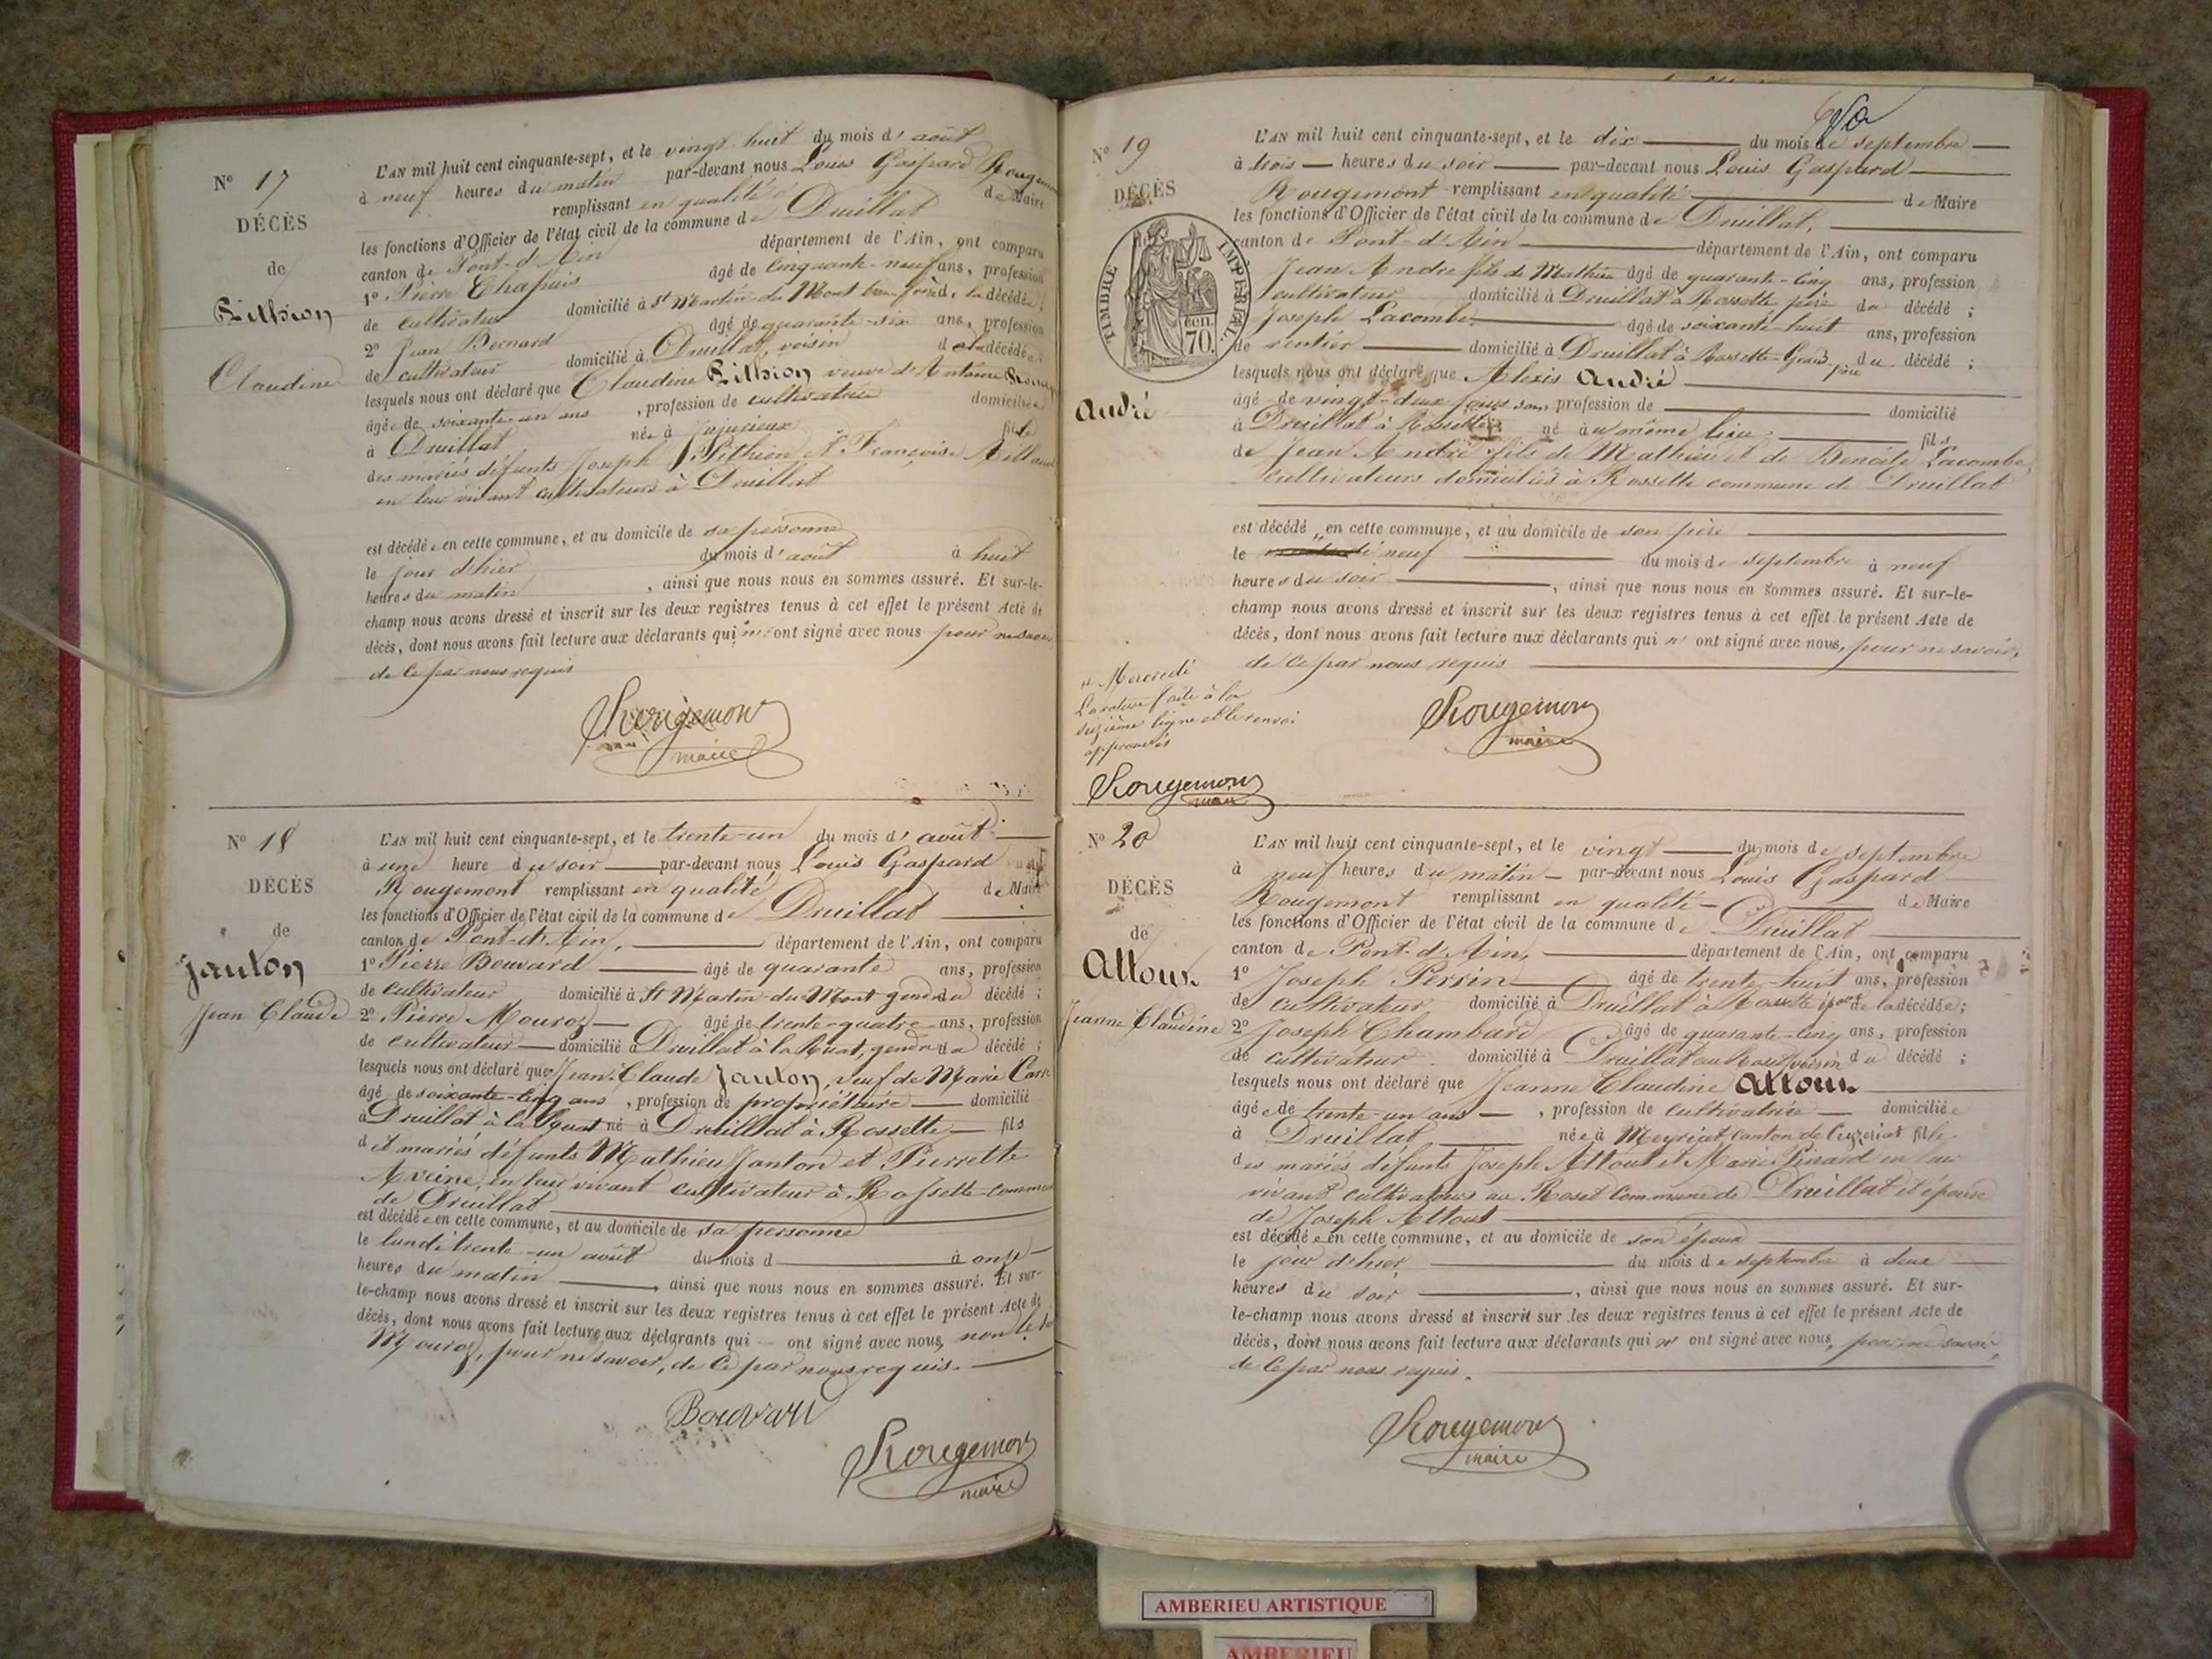 N° 17
DÉCÈS
de
Pithion
Claudine
L'AN mil huit cent cinquante-sept, et le vingt-huit du mois d'août
à neuf heures du matin par-devant nous Louis Gaspard
remplissant en qualité de Maire
les fonctions d'Officier de l'état civil de la commune de Druillat
canton de Pont-d'Ain département de l'Ain, ont comparu
1° Pierre Chapuis âgé de cinquante-neuf ans, profession
de cultivateur domicilié à St Martin-du-Mont la décédée;
2° Jean Bernard âgé de quarante-six ans, profession
de cultivateur domicilié à Druillat, voisin de la décédée;
lesquels nous ont déclaré que Claudine Pithion veuve d'Antoine
âgée de soixante-un ans, profession de cultivatrice domiciliée
à Druillat née à Jujurieux fille
des mariés défunts Joseph Pithion et Françoise
en leur vivant cultivateurs à Druillat
est décédée en cette commune, et au domicile de sa personne
le jour d'hier du mois d'août à huit
heures du matin, ainsi que nous nous en sommes assuré. Et sur-le-
champ nous avons dressé et inscrit sur les deux registres tenus à cet effet le présent Acte de
décès, dont nous avons fait lecture aux déclarants qui n'ont signé avec nous pour ne savoir
de ce par nous requis
Rougemont
maire
N° 18
DÉCÈS
de
Janton
Jean Claude
L'AN mil huit cent cinquante-sept, et le trente-un du mois d'août
à une heure du soir par-devant nous Louis Gaspard
Rougemont remplissant en qualité de Maire
les fonctions d'Officier de l'état civil de la commune de Druillat
canton de Pont-d'Ain, département de l'Ain, ont comparu
1° Pierre Bouvard âgé de quarante ans, profession
de cultivateur domicilié à St Martin-du-Mont gendre du décédé;
2° Pierre Mouroz âgé de trente-quatre ans, profession
de cultivateur domicilié à Druillat à la Ruat, gendre du décédé;
lesquels nous ont déclaré que Jean-Claude Janton, veuf de Marie
âgé de soixante-cinq ans, profession de propriétaire domicilié
à Druillat à la Ruat né à Druillat à Rossette fils
des mariés défunts Mathieu Janton et Pierrette
Aveine, en leur vivant cultivateur à Rossette commune
de Druillat
est décédé en cette commune, et au domicile de sa personne
le lundi trente-un août du mois d à onze
heures du matin, ainsi que nous nous en sommes assuré. Et sur-
le-champ nous avons dressé et inscrit sur les deux registres tenus à cet effet le présent Acte de
décès, dont nous avons fait lecture aux déclarants qui ont signé avec nous, non le
Mouroz, pour ne savoir, de ce par nous requis.
Bouvard
Rougemont
maire
N° 19
DÉCÈS
André
TIMBRE IMPÉRIAL
cen. 70.
L'AN mil huit cent cinquante-sept, et le dix du mois de septembre
à trois heures du soir par-devant nous Louis Gaspard
Rougemont remplissant en qualité de Maire
les fonctions d'Officier de l'état civil de la commune de Druillat,
canton de Pont-d'Ain département de l'Ain, ont comparu
Jean André fils de Mathieu âgé de quarante-cinq ans, profession
cultivateur domicilié à Druillat à Rossette père du décédé;
Joseph Lacombe âgé de soixante-huit ans, profession
de rentier domicilié à Druillat à Rossette Grand-père du décédé;
lesquels nous ont déclaré que Alexis André
âgé de vingt-deux jours sans profession de domicilié
à Druillat à Rossette né au même lieu fils
de Jean André fils de Mathieu et de Benoite Lacombe,
cultivateurs domiciliés à Rossette commune de Druillat
est décédé en cette commune, et au domicile de son père
le neuf du mois de septembre à neuf
heures du soir, ainsi que nous nous en sommes assuré. Et sur-le-
champ nous avons dressé et inscrit sur les deux registres tenus à cet effet le présent Acte de
décès, dont nous avons fait lecture aux déclarants qui n'ont signé avec nous, pour ne savoir,
de ce par nous requis
Mercredi
La rature faite à la
seizième ligne et le renvoi
approuvés
Rougemont
maire
Rougemont
maire
N° 20
DÉCÈS
de
Allout
Jeanne Claudine
L'AN mil huit cent cinquante-sept, et le vingt du mois de septembre
à neuf heures du matin par-devant nous Louis Gaspard
Rougemont remplissant en qualité de Maire
les fonctions d'Officier de l'état civil de la commune de Druillat
canton de Pont-d'Ain, département de l'Ain, ont comparu
1° Joseph Perrin âgé de trente-huit ans, profession
de cultivateur domicilié à Druillat à Rossette de la décédée;
2° Joseph Chambard âgé de quarante-cinq ans, profession
de cultivateur domicilié à Druillat au Roset voisin du décédé;
lesquels nous ont déclaré que Jeanne Claudine Allout
âgée de trente-un ans, profession de cultivatrice domiciliée
à Druillat née à Meyriat canton de Ceyzeriat fille
des mariés défunts Joseph Allout et Marie Pinard en leur
vivant cultivateurs au Roset commune de Druillat et épouse
de Joseph Allout
est décédée en cette commune, et au domicile de son époux
le jour d'hier du mois de septembre à deux
heures du soir, ainsi que nous nous en sommes assuré. Et sur-
le-champ nous avons dressé et inscrit sur les deux registres tenus à cet effet le présent Acte de
décès, dont nous avons fait lecture aux déclarants qui n'ont signé avec nous, pour ne savoir,
de ce par nous requis.
Rougemont
maire
AMBERIEU ARTISTIQUE
AMBERIEU